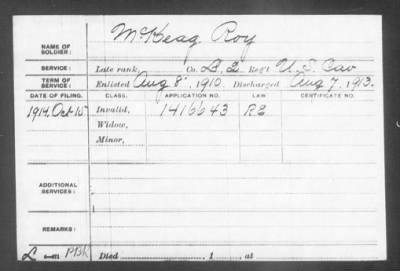 NAME OF SOLDIER: McKeag, Roy
SERVICE: Late rank, Co. L, 2 Reg't U.S. Cav
TERM OF SERVICE: Enlisted Aug 8, 1910. Discharged Aug 7, 1913.
DATE OF FILING. CLASS. APPLICATION NO. LAW CERTIFICATE NO.
1914, Oct 15 Invalid, 1416643 R.E.
Widow,
Minor,
ADDITIONAL SERVICES:
REMARKS:
Died , 1 , at